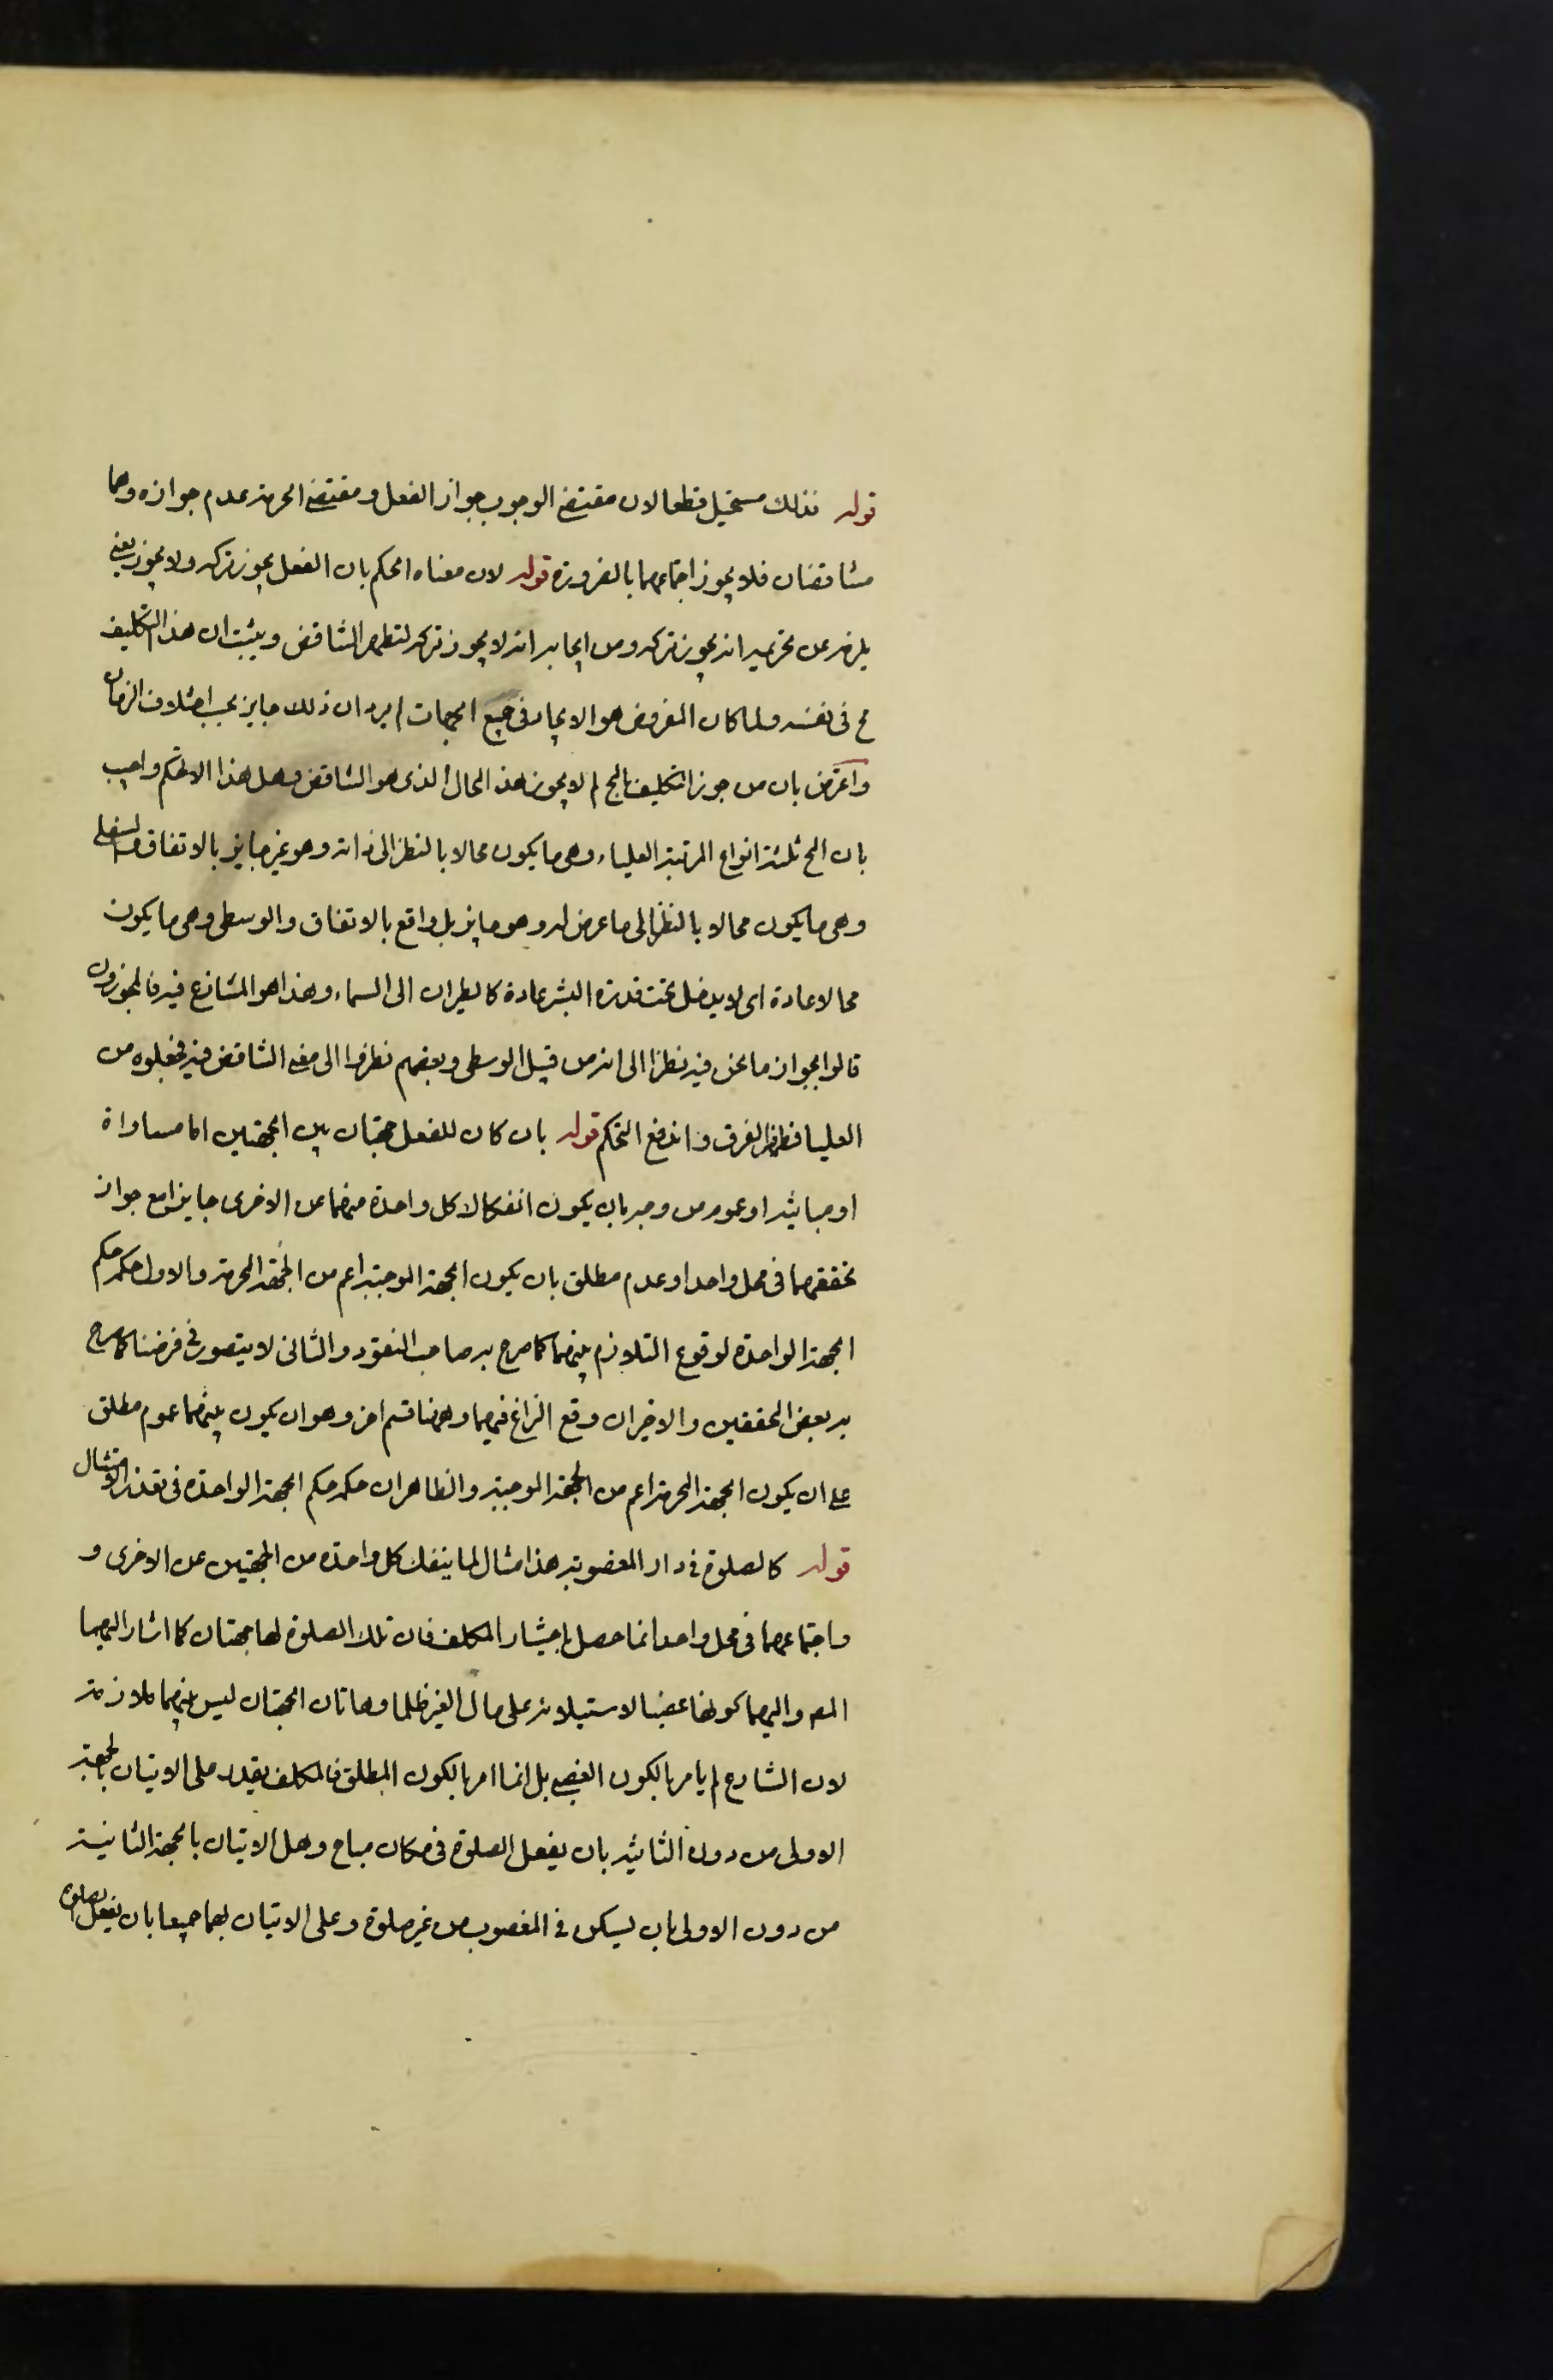 قوله فذلك مستحيل قطعا لان مقتضى الوجوب جواز الفعل ومقتضى الحرمة عدم جوازه وهما
متناقضان فلا يجوز اجتماعهما بالضرورة قوله لان معناه الحكم بان الفعل يجوز تركه ولا يجوز يعنى
يلزم من تحريمه انه يجوز تركه ومن ايجابه انه لا يجوز تركه لتظهر التناقض ويثبت ان هذا التكليف
مح فى نفسه ولما كان المفروض هو الاتحاد فى جميع الجهات لم يرد ان ذلك جايز بحسب اختلاف الزمان
واعترض بان من جوز التكليف بالمح لم لا يجوز هذا المحال الذى هو التناقض وهل هذا الا تحكم واجيب
بان المح ثلثة انواع المرتبة العلياء وهى ما يكون محالا بالنظر الى ذاته وهو غير جايز بالاتفاق والسفلى
وهى ما يكون محالا بالنظر الى ما عرض له وهو جايز بل واقع بالاتفاق والوسطى وهى ما يكون
محالا عادة اى لا يدخل تحت قدرة البشر عادة كالطيران الى السماء وهذا هو المتنازع فيه فالمجوزون
قالوا بجواز ما نحن فيه نظرا الى انه من قبيل الوسطى وبعضهم نظروا الى معنى التناقض فيه فجعلوه من
العليا فظهر الفرق واندفع التحكم قوله بان كان للفعل جهتان بين الجهتين اما مساواة
او مباينة او عموم من وجه بان يكون انفكاك كل واحدة منهما عن الاخرى جايزا مع جواز
تحققهما فى محل واحد او عدم مطلق بان يكون الجهة الموجبة اعم من الجهة المحرمة والاول حكمه حكم
الجهة الواحدة لوقوع التلازم بينهما كما صرح به صاحب النقود والثانى لا يتصور فى فرضنا كما صرح
به بعض المحققين والاخيران وقع النزاع فيهما وههنا قسم اخر وهو ان يكون بينهما عموم مطلق
على ان يكون الجهة المحرمة اعم من الجهة الموجبة والظاهر ان حكمه حكم الجهة الواحدة فى تعذر الامتثال
قوله كالصلوة فى دار المغصوبة هذا مثال لما ينفك كل واحدة من الجهتين عن الاخرى و
واجتماعهما فى محل واحد انما حصل باختيار المكلف فان تلك الصلوة لها جهتان كما اشار اليهما
المص واليهما كونها غصبا لاستيلائه على مال الغير ظلما وهاتان الجهتان ليس بينهما ملازمة
لان الشارع لم يامر بالكون الغصبى بل انما امر بالكون المطلق فالمكلف يقدر على الاتيان بالجهة
الاولى من دون الثانية بان يفعل الصلوة فى مكان مباح وعلى الاتيان بالجهة الثانية
من دون الاولى بان يسكن فى المغصوب من غير صلوة وعلى الاتيان بهما جميعا بان يفعل الصلوة